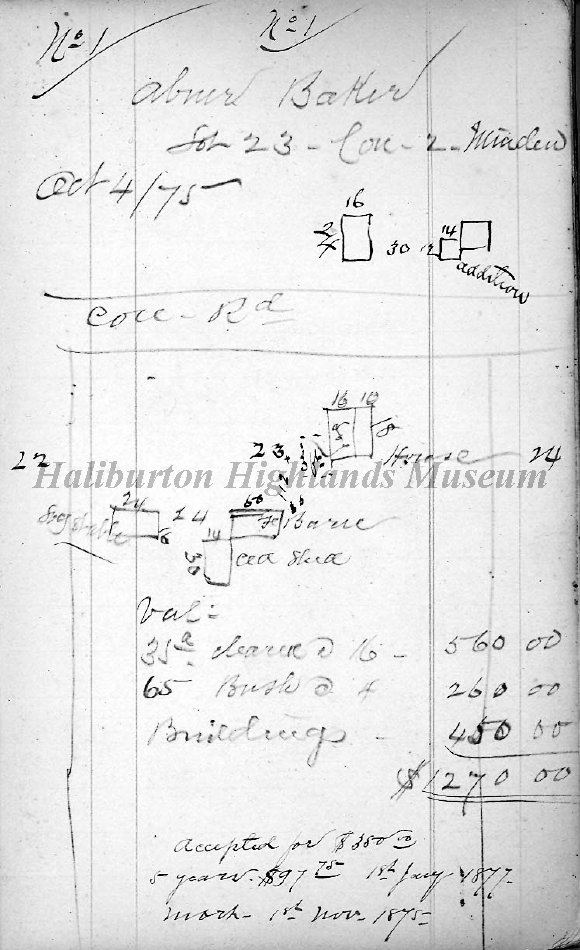 No 1 No 1
Abner Baker
Lot 23 - Con - 2 - Minden
Oct 4/75
16
24 30 12 14
addition
Con - Rd
16 10
18
23
House
22 24
Haliburton Highlands Museum
24 60
Log Stable 18 24 14 Barn
30 Old Shed
Val:
35a cleared @ 16 - 560 00
65 Bush @ 4 260 00
Buildings - 450 00
$1270 00
Accepted for $350 00
5 years - $97 75 1st Jany 1877 -
Mort - 1st Nov - 1875 -